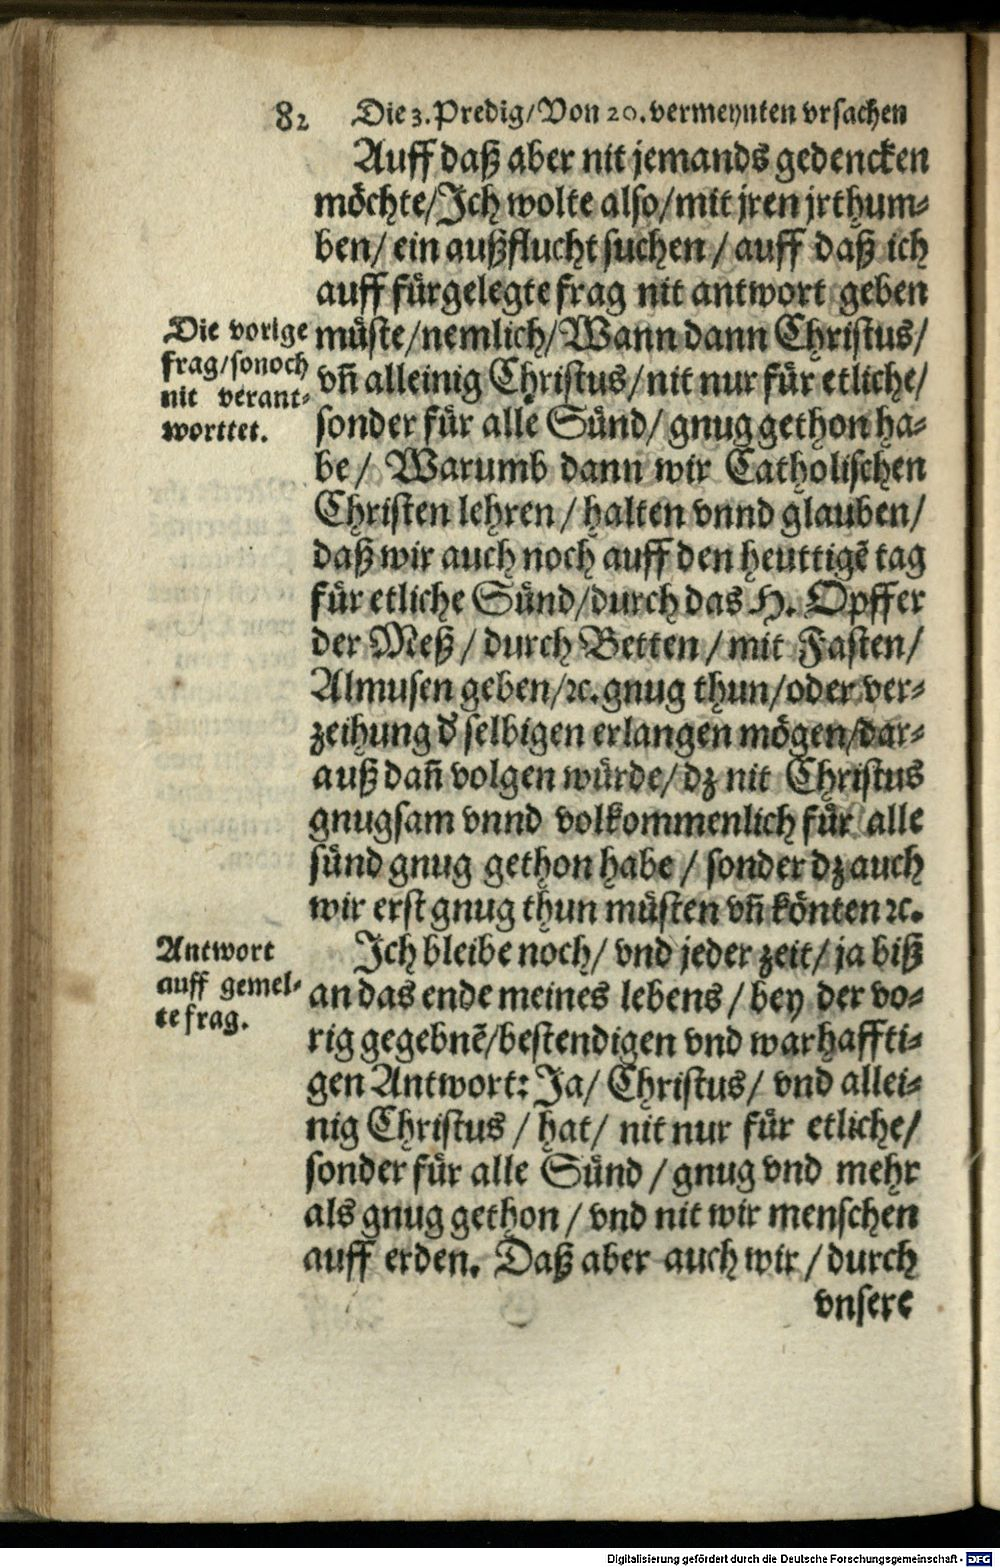 82 Die 3. Predig/Von 20. vermeynten vrsachen
Auff daß aber nit jemands gedencken
möchte/Ich wolte also/mit jren jrthum⸗
ben/ ein außflucht suchen / auff daß ich
auff fürgelegte frag nit antwort geben
müste/nemlich/Wann dann Christus/
vñ alleinig Christus/nit nur für etliche/
sonder für alle Sünd/ gnug gethon ha⸗
be/ Warumb dann wir Catholischen
Christen lehren / halten vnnd glauben/
daß wir auch noch auff den heuttigẽ tag
für etliche Sünd/durch das H. Opffer
der Meß / durch Betten / mit Fasten/
Almusen geben/ꝛc. gnug thun/oder ver⸗
zeihung d' selbigen erlangen mögen/dar⸗
auß dañ volgen würde/ dz nit Christus
gnugsam vnnd volkommenlich für alle
sünd gnug gethon habe / sonder dz auch
wir erst gnug thun müsten vñ könten ꝛc.
Ich bleibe noch/ vnd jeder zeit/ ja biß
an das ende meines lebens / bey der vo⸗
rig gegebnẽ/bestendigen vnd warhaffti⸗
gen Antwort: Ja/ Christus/ vnd allei⸗
nig Christus / hat/ nit nur für etliche/
sonder für alle Sünd / gnug vnd mehr
als gnug gethon / vnd nit wir menschen
auff erden. Daß aber auch wir / durch
vnsere
Die vorige
frag/so noch
nit verant⸗
worttet.
Antwort
auff gemel⸗
te frag.
Digitalisierung gefördert durch die Deutsche Forschungsgemeinschaft - DFG